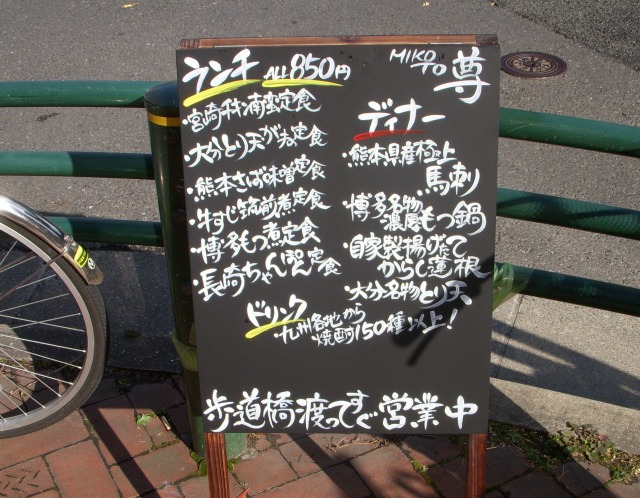 ランチ ALL850円
・宮崎チキン南蛮定食
・大分とり天がね定食
・熊本さば味噌定食
・牛すじ筑前煮定食
・博多もつ煮定食
・長崎ちゃんぽん定食
MIKOTO 尊
ディナー
・熊本県産極上
馬刺
・博多名物
濃厚もつ鍋
・自家製揚げたて
からし蓮根
・大分名物とり天
ドリンク
・九州各地から
焼酎150種以上!
歩道橋渡ってすぐ営業中